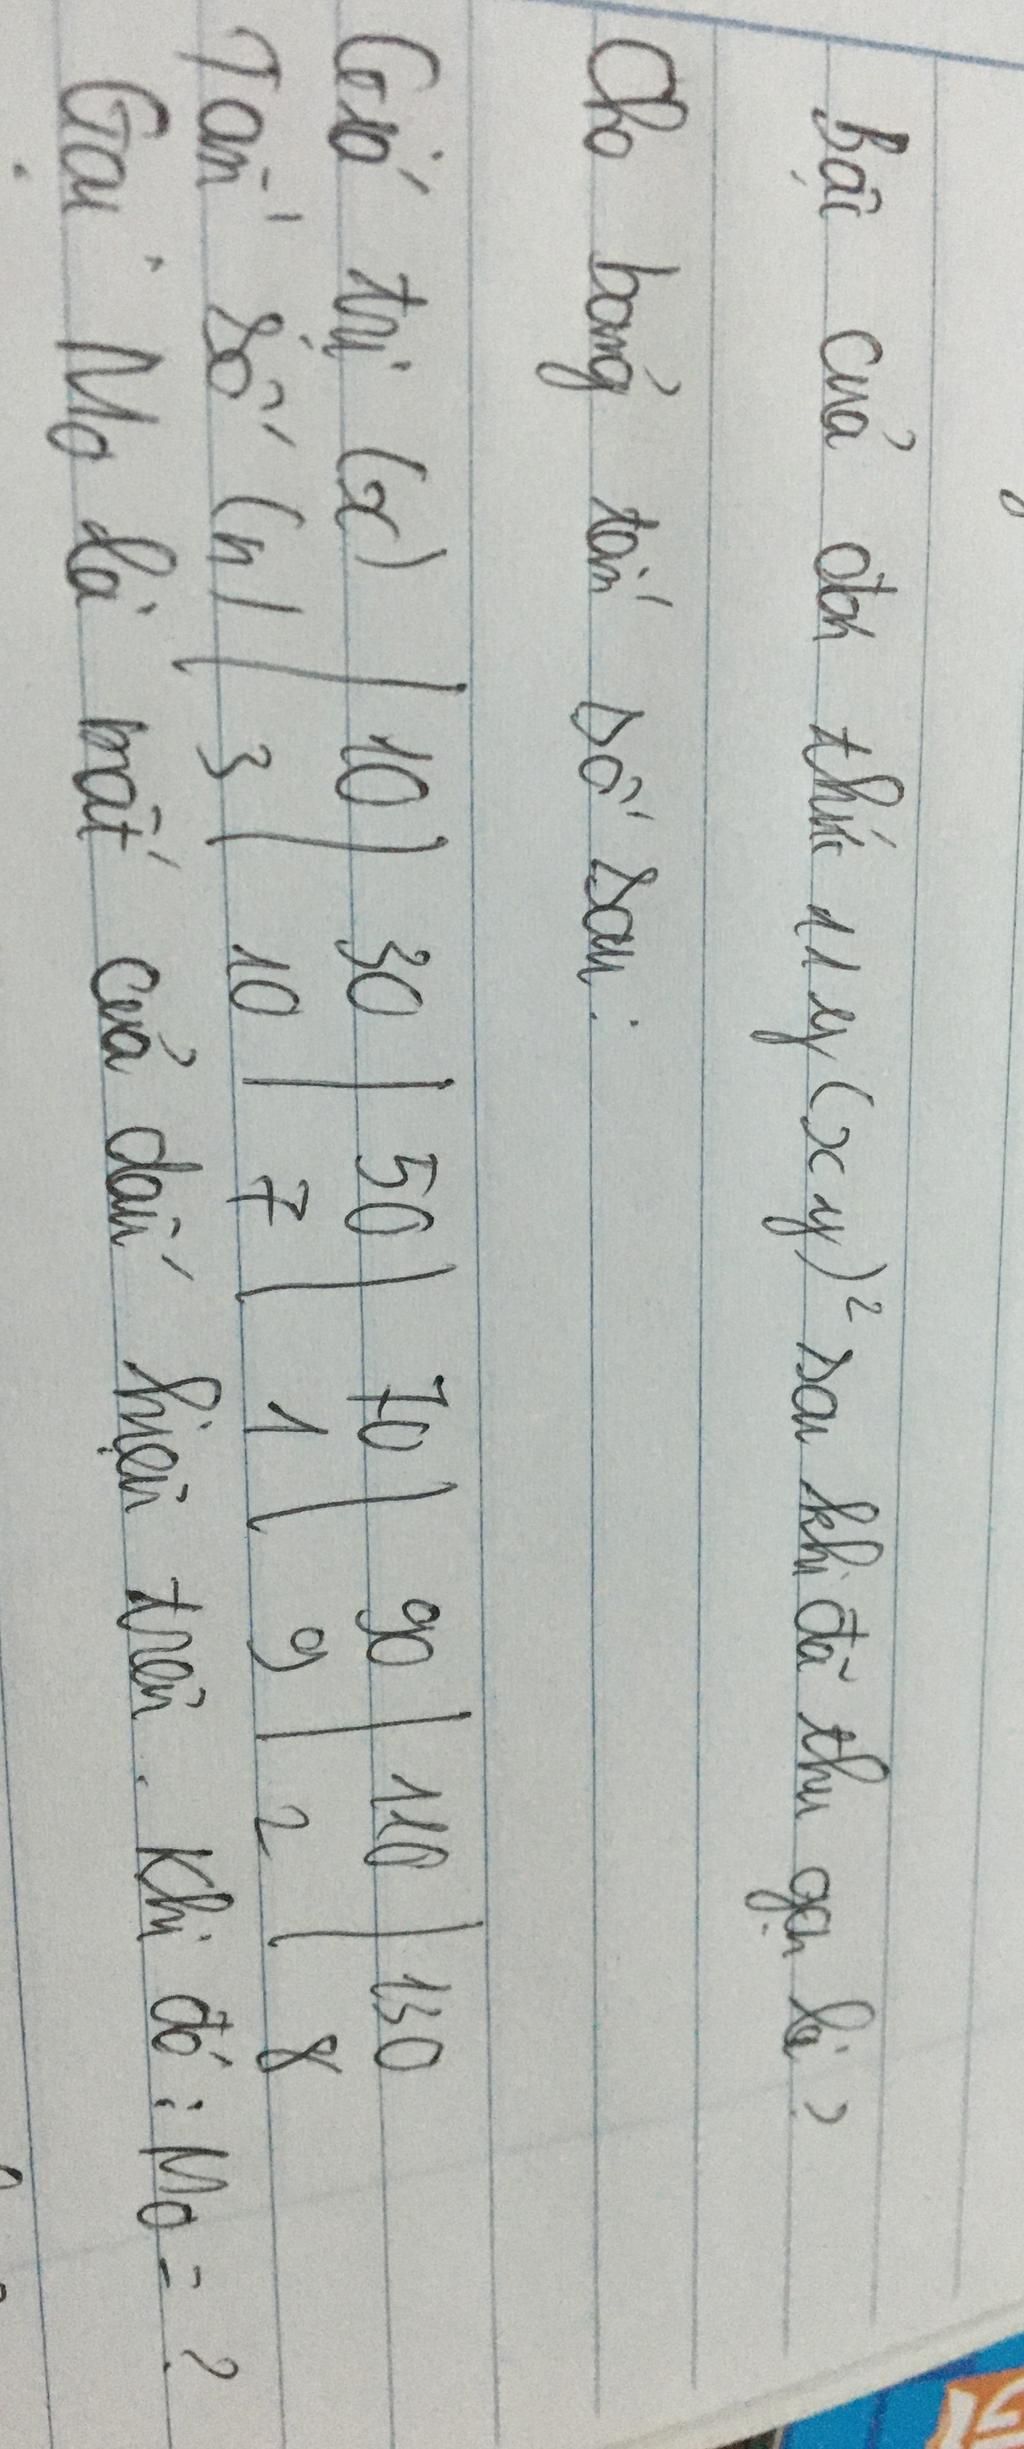 Bậc của đơn thức 11y(xy)² sau khi đã thu gọn là?
Cho bảng tần số sau:
Giá trị (x) | 10 | 30 | 50 | 70 | 90 | 110 | 130
Tần số (n) | 3 | 10 | 7 | 1 | 9 | 2 | 8
Gọi Mo là mốt của dấu hiệu trên. Khi đó: Mo = ?